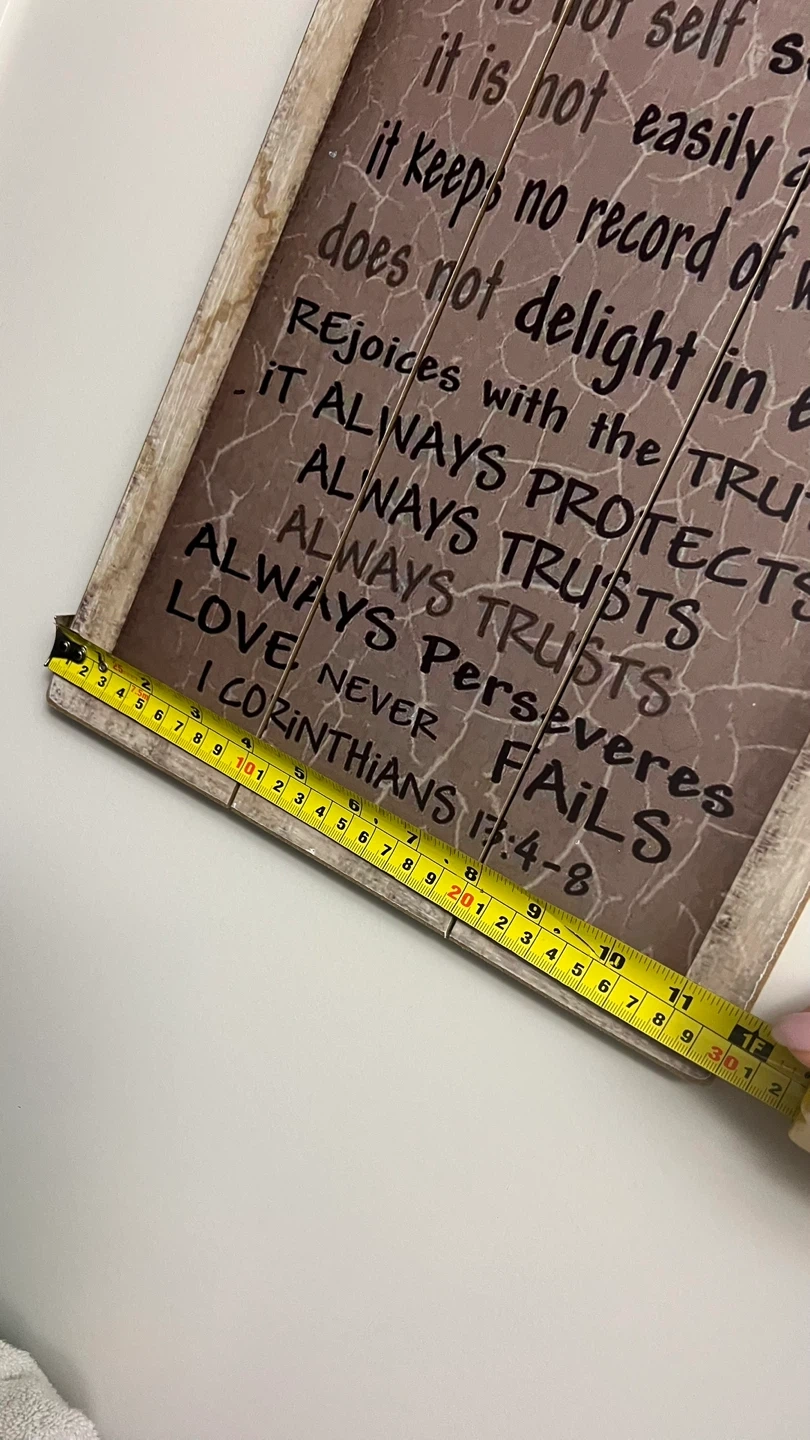 is not self
it is not easily
it keeps no record of
does not delight in
REjoices with the
iT ALWAYS PROTECTS
ALWAYS TRUSTS
ALWAYS TRUSTS
ALWAYS Perseveres
LOVE NEVER FAiLS
1 CORiNTHiANS 13:4-8
2 3 4 5 6 7 8 9 10 11 1F
1 2 3 4 5 6 7 8 9 10 1 2 3 4 5 6 7 8 9 20 1 2 3 4 5 6 7 8 9 30 1 2